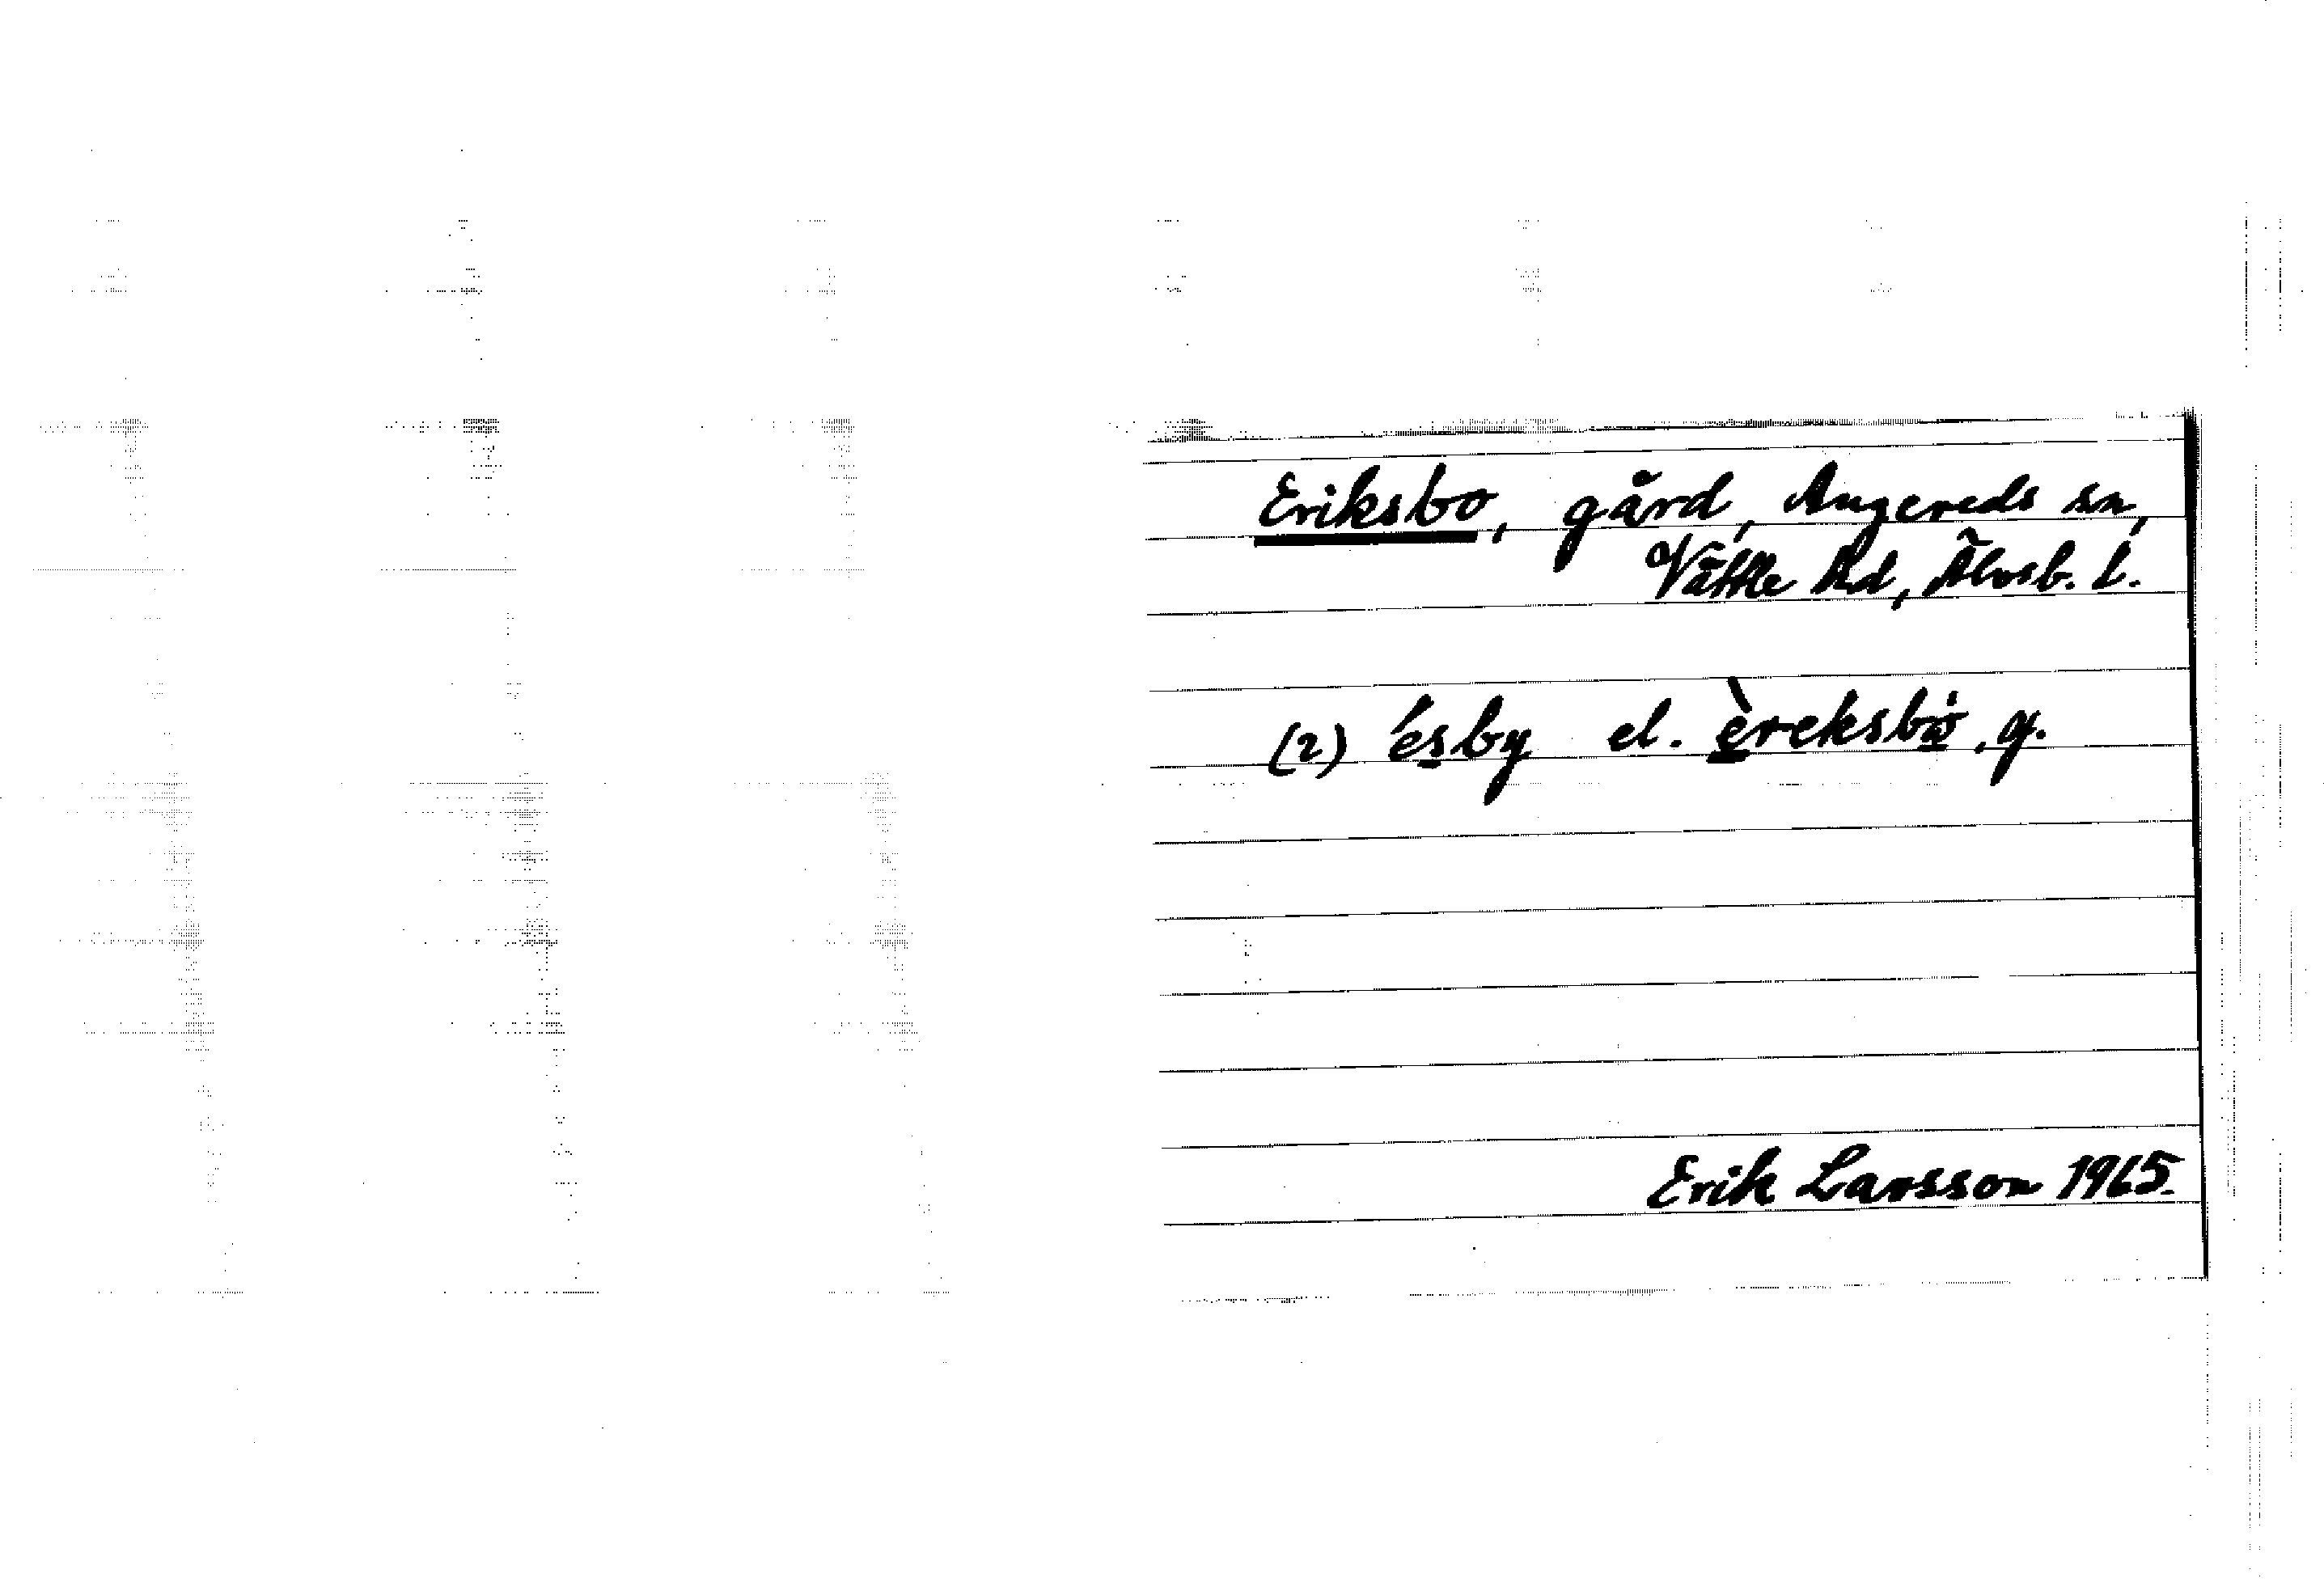 Eriksbo, gård, Angereds sn,
Vättle hd, Älvsb. l.
(2) ésby el. èreksbö̀, g.
Erik Larsson 1965.